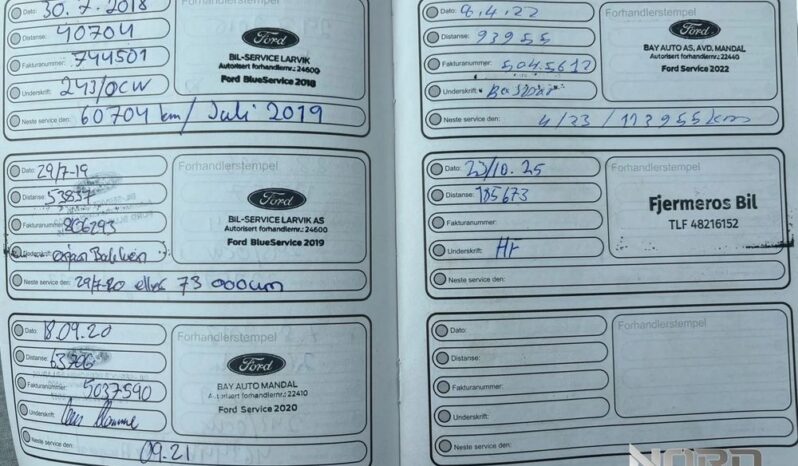 Dato: 30.7.2018
Distanse: 40704
Fakturanummer: 744501
Underskrift: 243/OCW
Neste service den: 60704 km / Juli 2019
Ford
BIL-SERVICE LARVIK
Autorisert forhandlernr.: 24600
Ford BlueService 2018
Dato: 29/7-19
Distanse: 53837
Fakturanummer: 806293
Underskrift:
Neste service den: 29/7-20 eller 73 000km
Forhandlerstempel
Ford
BIL-SERVICE LARVIK AS
Autorisert forhandlernr.: 24600
Ford BlueService 2019
Dato: 18.09.20
Distanse: 63706
Fakturanummer: 5037590
Underskrift:
Neste service den: 09.21
Forhandlerstempel
Ford
BAY AUTO MANDAL
Autorisert forhandlernr.: 22410
Ford Service 2020
Dato: 8.4.22
Distanse: 93955
Fakturanummer: 5045612
Underskrift:
Neste service den: 4/23 / 113955km
Forhandlerstempel
Ford
BAY AUTO AS, AVD. MANDAL
Autorisert forhandlernr.: 22440
Ford Service 2022
Dato: 23/10.25
Distanse: 185673
Fakturanummer:
Underskrift: Hr
Neste service den:
Forhandlerstempel
Fjermeros Bil
TLF 48216152
Dato:
Distanse:
Fakturanummer:
Underskrift:
Neste service den:
Forhandlerstempel
NORD